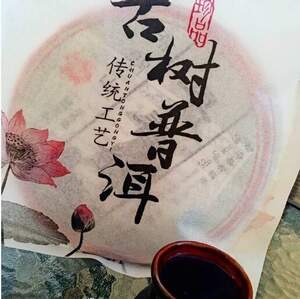 珍品
古树普洱
传统工艺
CHUANTONGGONGYI